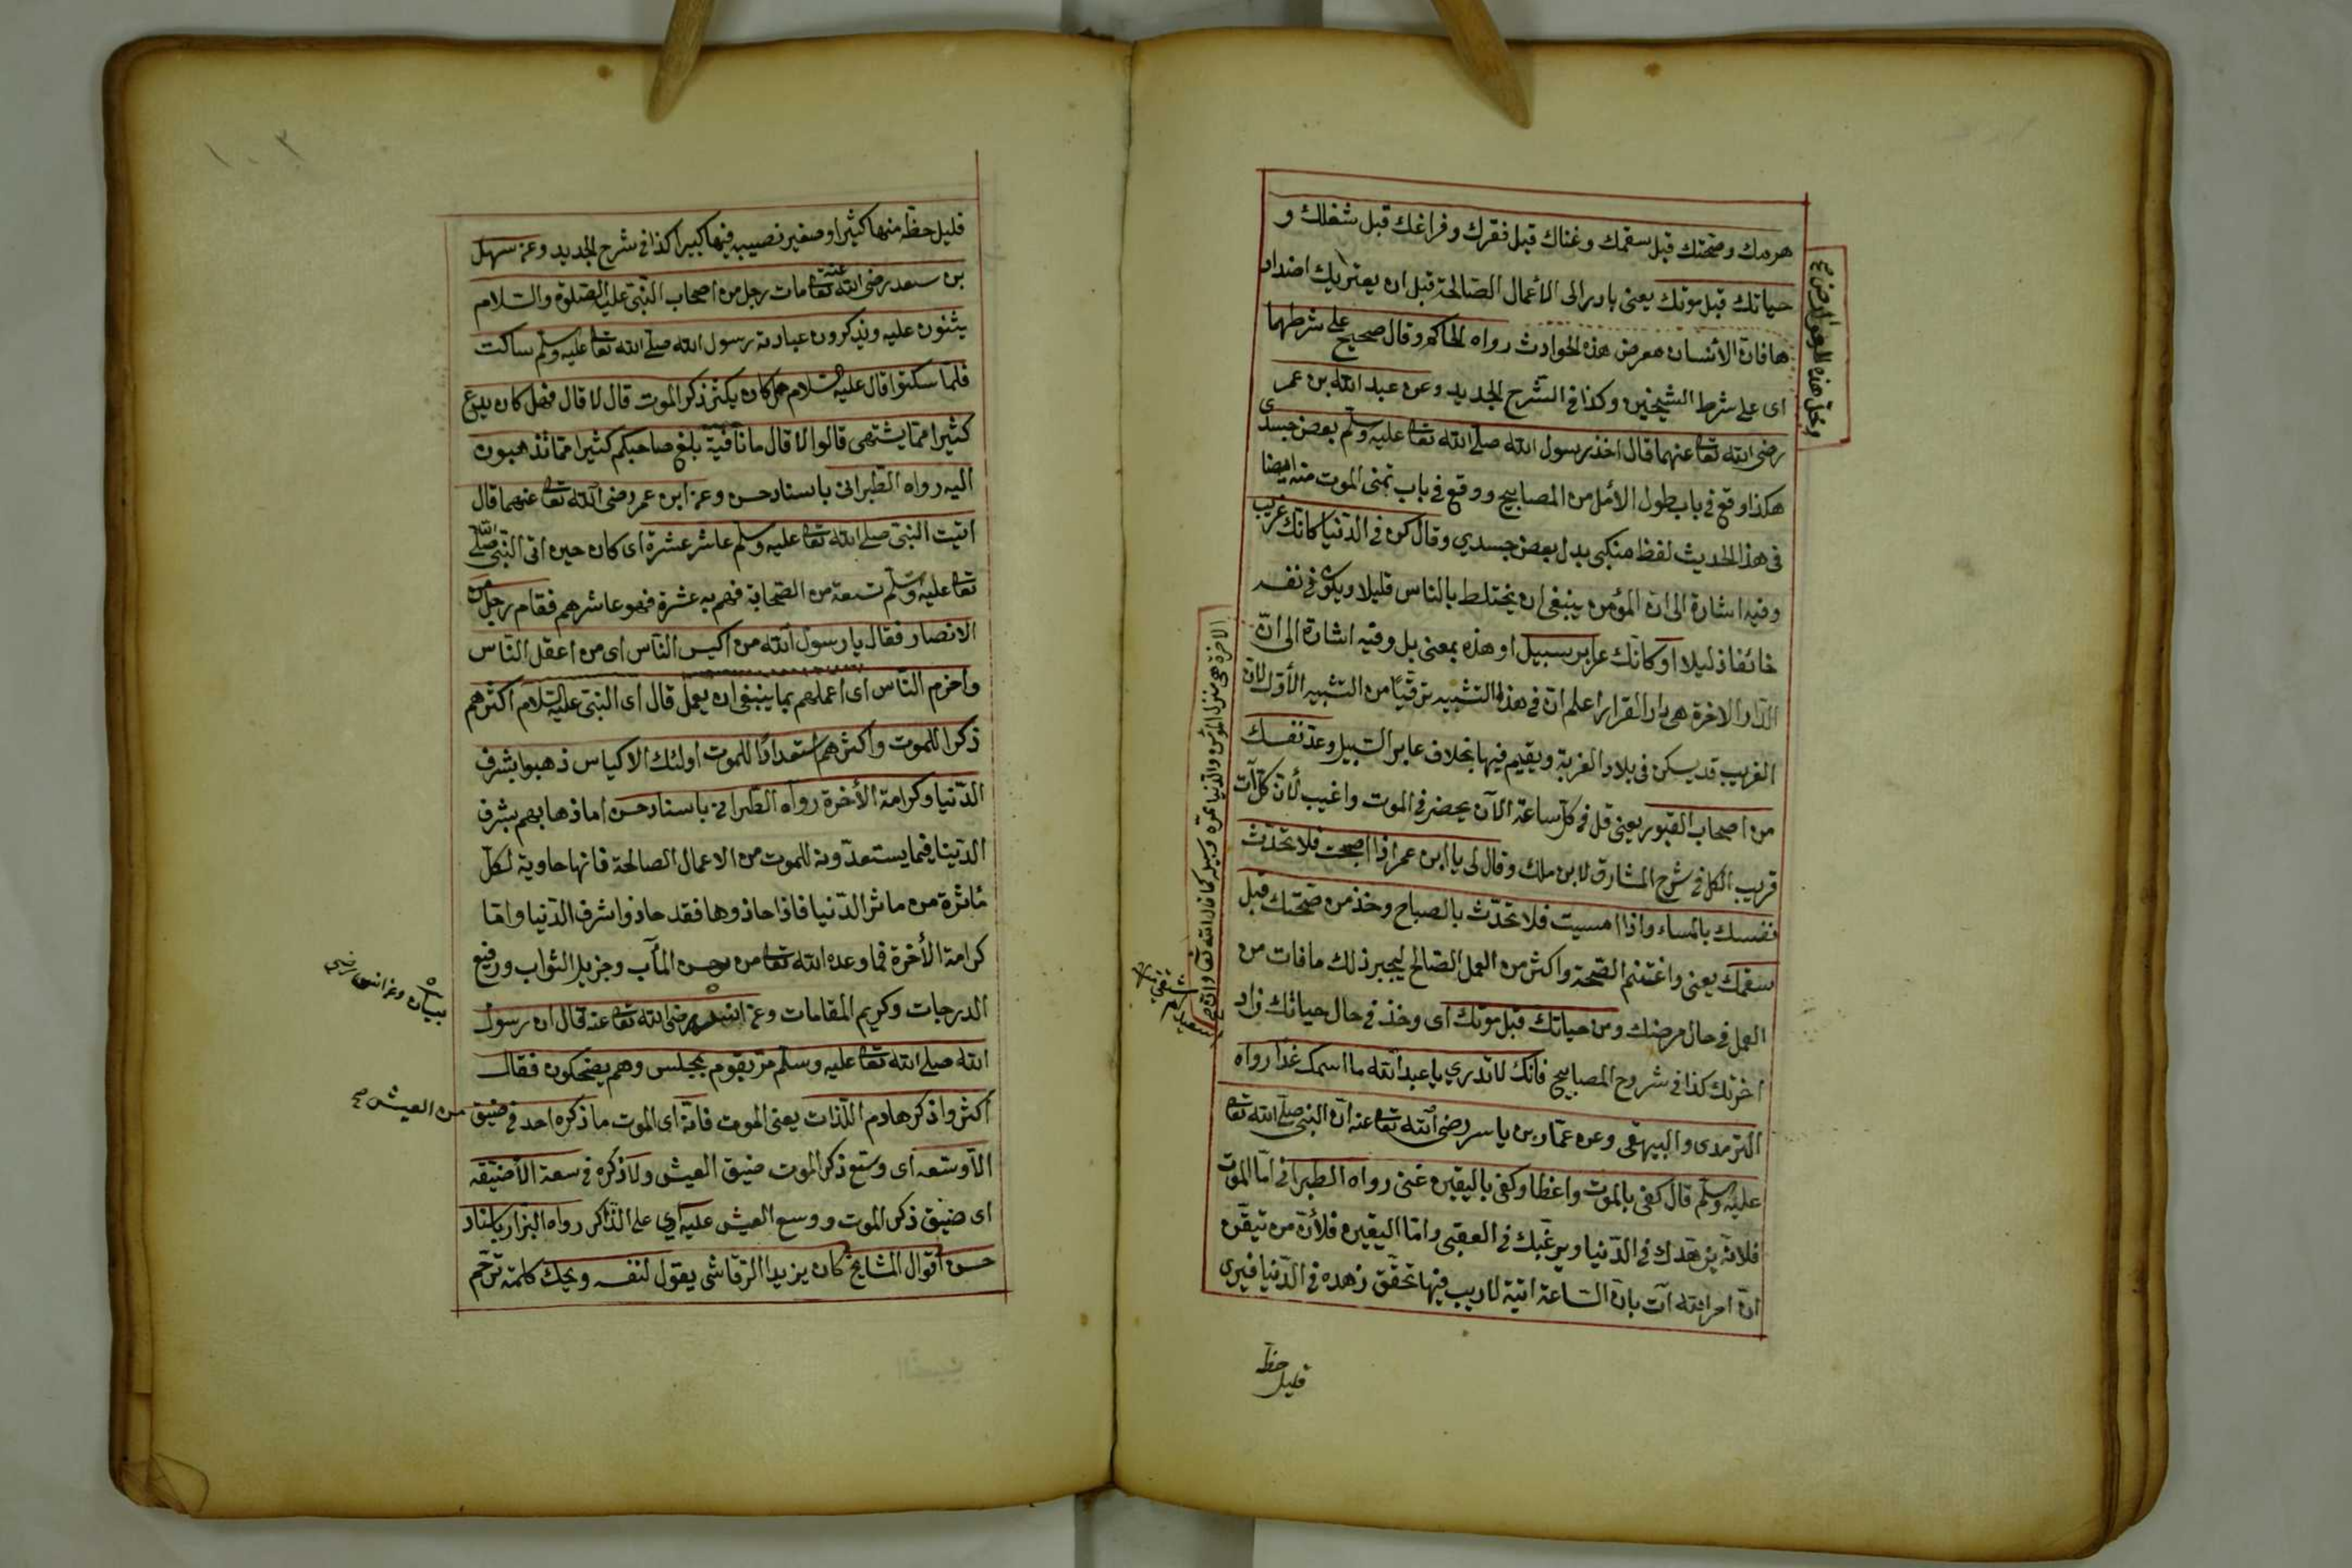 هرمك وصحتك قبل سقمك وغناك قبل فقرك وفراغك قبل شغلك و
حياتك قبل موتك يعنى بادر الى الأعمال الصالحة قبل ان يعتريك اضداد
ها فان الأنسان معرض هذه الحوادث رواه الحاكم وقال صحيح على شرطهما
اى على شرط الشيخين وكذا فى الشرح الجديد وعن عبد الله بن عمر
رضى الله تعا عنهما قال اخذ رسول الله صلى الله تعا عليه وسلم بعض جسدى
هكذا وقع فى باب طول الأمل من المصابيح ووقع فى باب تمنى الموت منه ايضا
فى هذا الحديث لفظ منكبى بدل بعض جسدي وقال كن فى الدنيا كانك غريب
وفيه اشارة الى ان المؤمن ينبغى ان يختلط بالناس قليلا ويكون فى نفسه
خائفا ذليلا او كانك عابر سبيل او هذه بمعنى بل وفيه اشارة الى ان
الدار الاخرة هى دار القرار اعلم ان فى هذا التشبيه ترقيا من التشبيه الأول لان
الغريب قد يسكن فى بلاد الغربة ويقيم فيها بخلاف عابر السبيل وعد نفسك
من اصحاب القبور يعنى قل فى كل ساعة الآن يحضر فى الموت واغيب لأن كل آت
قريب الكل فى شرح المشارق لابن ملك وقال لى يا ابن عمر اذا اصبحت فلا تحدث
نفسك بالمساء واذا امسيت فلا تحدث بالصباح وخذ من صحتك قبل
سقمك يعنى واغتنم الصحة واكثر من العمل الصالح ليجبر ذلك ما فات من
العمل فى حال مرضك ومن حياتك قبل موتك اى وخذ فى حال حياتك زاد
اخرتك كذا فى شروح المصابيح فانك لا تدري يا عبد الله ما اسمك غدا رواه
الترمدى والبيهقى وعن عمار بن ياسر رضى الله تعا عنه ان النبى صلى الله تعا
عليه وسلم قال كفى بالموت واعظا وكفى باليقين غنى رواه الطبرانى اما الموت
فلانه يزهدك فى الدنيا ويرغبك فى العقبى واما اليقين فلأن من تيقن
ان امر الله آت بان الساعة اتية لا ريب فيها تحقق زهده فى الدنيا فيرى
قليل حظه
الاخرة هى منزل المؤمن والدنيا ممره وسبيله كما قال الله تعا
قليل حظه منها كثيرا وصغير نصيبه فيها كبيرا كذا فى شرح الجديد وعن سهل
بن سعد رضى الله تعا عنه مات رجل من اصحاب النبى عليه الصلوة والسلام
يثنون عليه ويذكرون عبادته رسول الله صلى الله تعا عليه وسلم ساكت
فلما سكتوا قال عليه السلام هل كان يكثر ذكر الموت قال لا قال فهل كان يدع
كثيرا مما يشتهى قالوا لا قال ما نافية بلغ صاحبكم كثيرا مما تذهبون
اليه رواه الطبرانى باسناد حسن وعن ابن عمر رضى الله تعا عنهما قال
اتيت النبى صلى الله تعا عليه وسلم عاشر عشرة اى كان حين اتى النبى صلى الله
تعا عليه وسلم تسعة من الصحابة فهم به عشرة فهو عاشرهم فقام رجل من
الانصار فقال يا رسول الله من اكيس الناس اى من اعقل الناس
واحزم الناس اى اعملهم بما ينبغى ان يعمل قال اى النبى عليه السلام اكثرهم
ذكرا للموت واكثرهم استعدادا للموت اولئك الاكياس ذهبوا بشرف
الدنيا وكرامة الأخرة رواه الطبرانى باسناد حسن اما ذهابهم بشرف
الدنيا فيما يستعدونه للموت من الاعمال الصالحة فانها حاوية لكل
مأثرة من ماثر الدنيا فاذا حاذوها فقد حاذوا شرف الدنيا واما
كرامة الأخرة فما وعده الله تعا من حسن المآب وجزيل الثواب ورفيع
الدرجات وكريم المقامات وعن انس رضى الله تعا عنه قال ان رسول
الله صلى الله تعا عليه وسلم مر بقوم بمجلس وهم يضحكون فقال
أكثروا ذكر هادم اللذات يعنى الموت فانه اى الموت ما ذكره احد فى ضيق من العيش صح
الا وسعه اى وسع ذكر الموت ضيق العيش ولا ذكره فى سعة الا ضيقه
اى ضيق ذكر الموت ووسع العيش عليه اي على الذاكر رواه البزار باسناد
حسن اقوال المشايخ كان يزيد الرقاشى يقول لنفسه ويحك كلمة ترحم
بيان وعن انس رضى